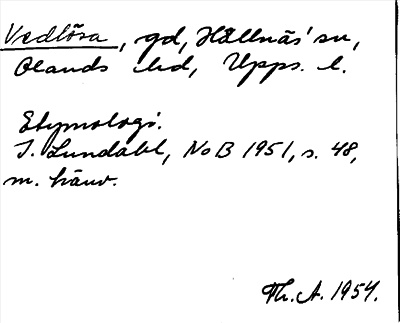 Vedlösa, gd, Hållnäs' sn,
Olands hd, Upps. l.
Etymologi.
I. Lundahl, NoB 1951, s. 48,
m. hänv.
Th. A. 1954.